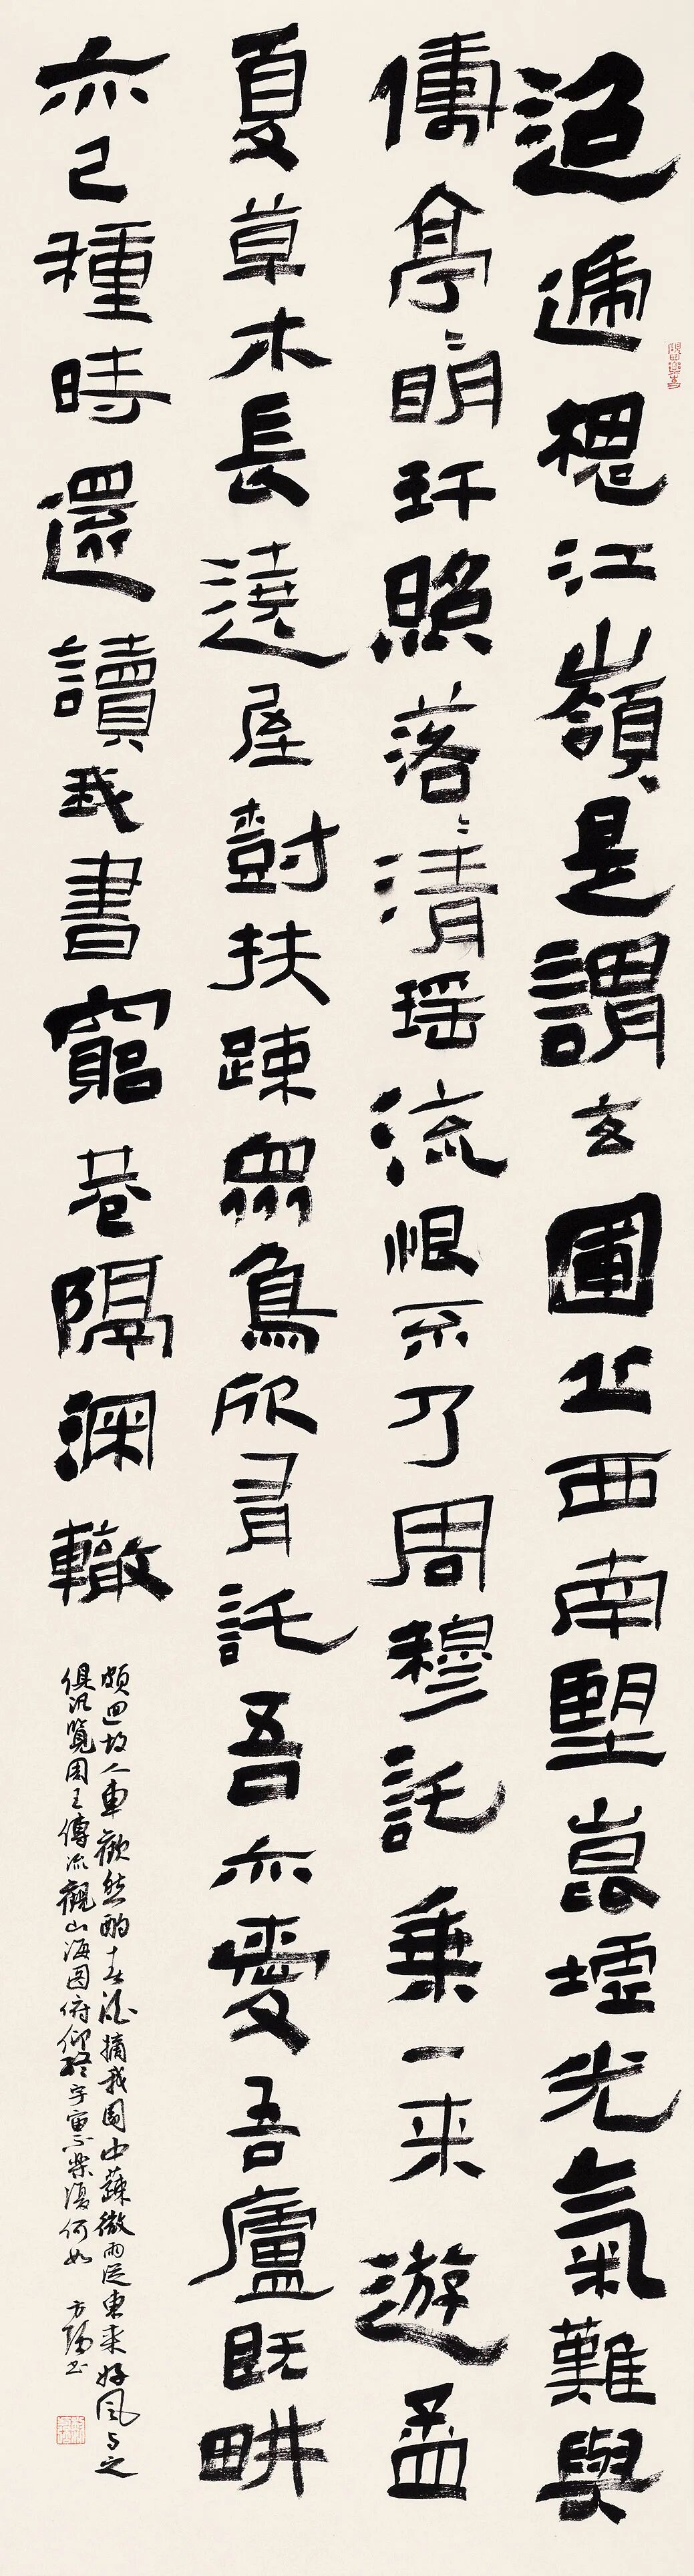 迢遞槐江嶺是謂玄圃丘西南望崑墟光氣難與
儔亭〻明玕照落〻清瑶流恨不及周穆託乗一来遊孟
夏草木長遶屋樹扶踈衆鳥欣有託吾亦愛吾廬既畊
亦已種時還讀我書窮巷隔深轍
頗迴故人車歡然酌春酒摘我園中蔬微雨從東来好風与之
俱汎覽周王傳流觀山海圖俯仰終宇宙不樂復何如